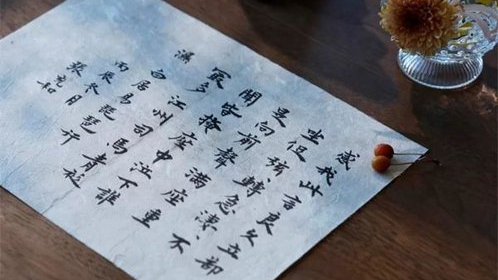 感我此言良久立却
坐促弦、轉急淒、不
似向前聲滿座重
聞皆掩泣座中泣下誰
最多江州司馬青衫
濕
白居易琵琶行